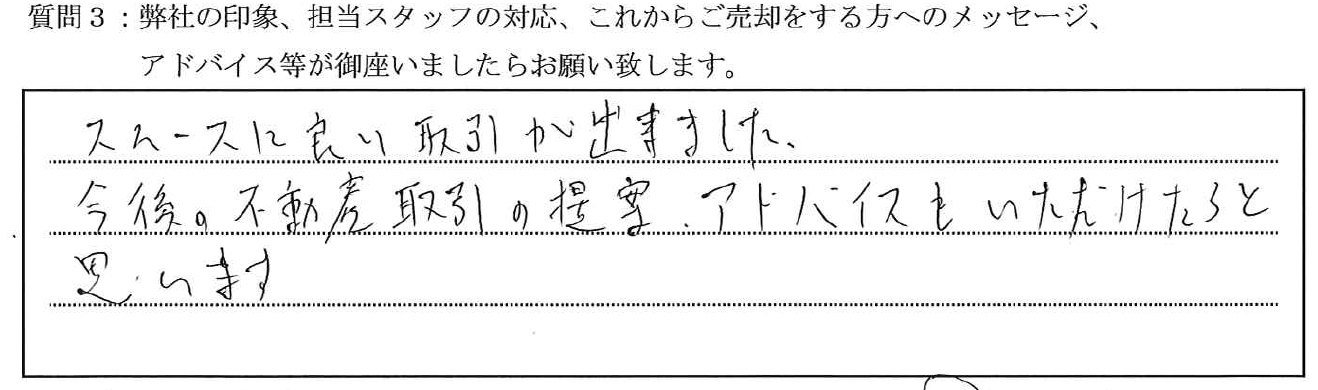 質問３：弊社の印象、担当スタッフの対応、これからご売却をする方へのメッセージ、
アドバイス等が御座いましたらお願い致します。
スムースに良い取引が出来ました、
今後の不動産取引の提案、アドバイスもいただけたらと
思います